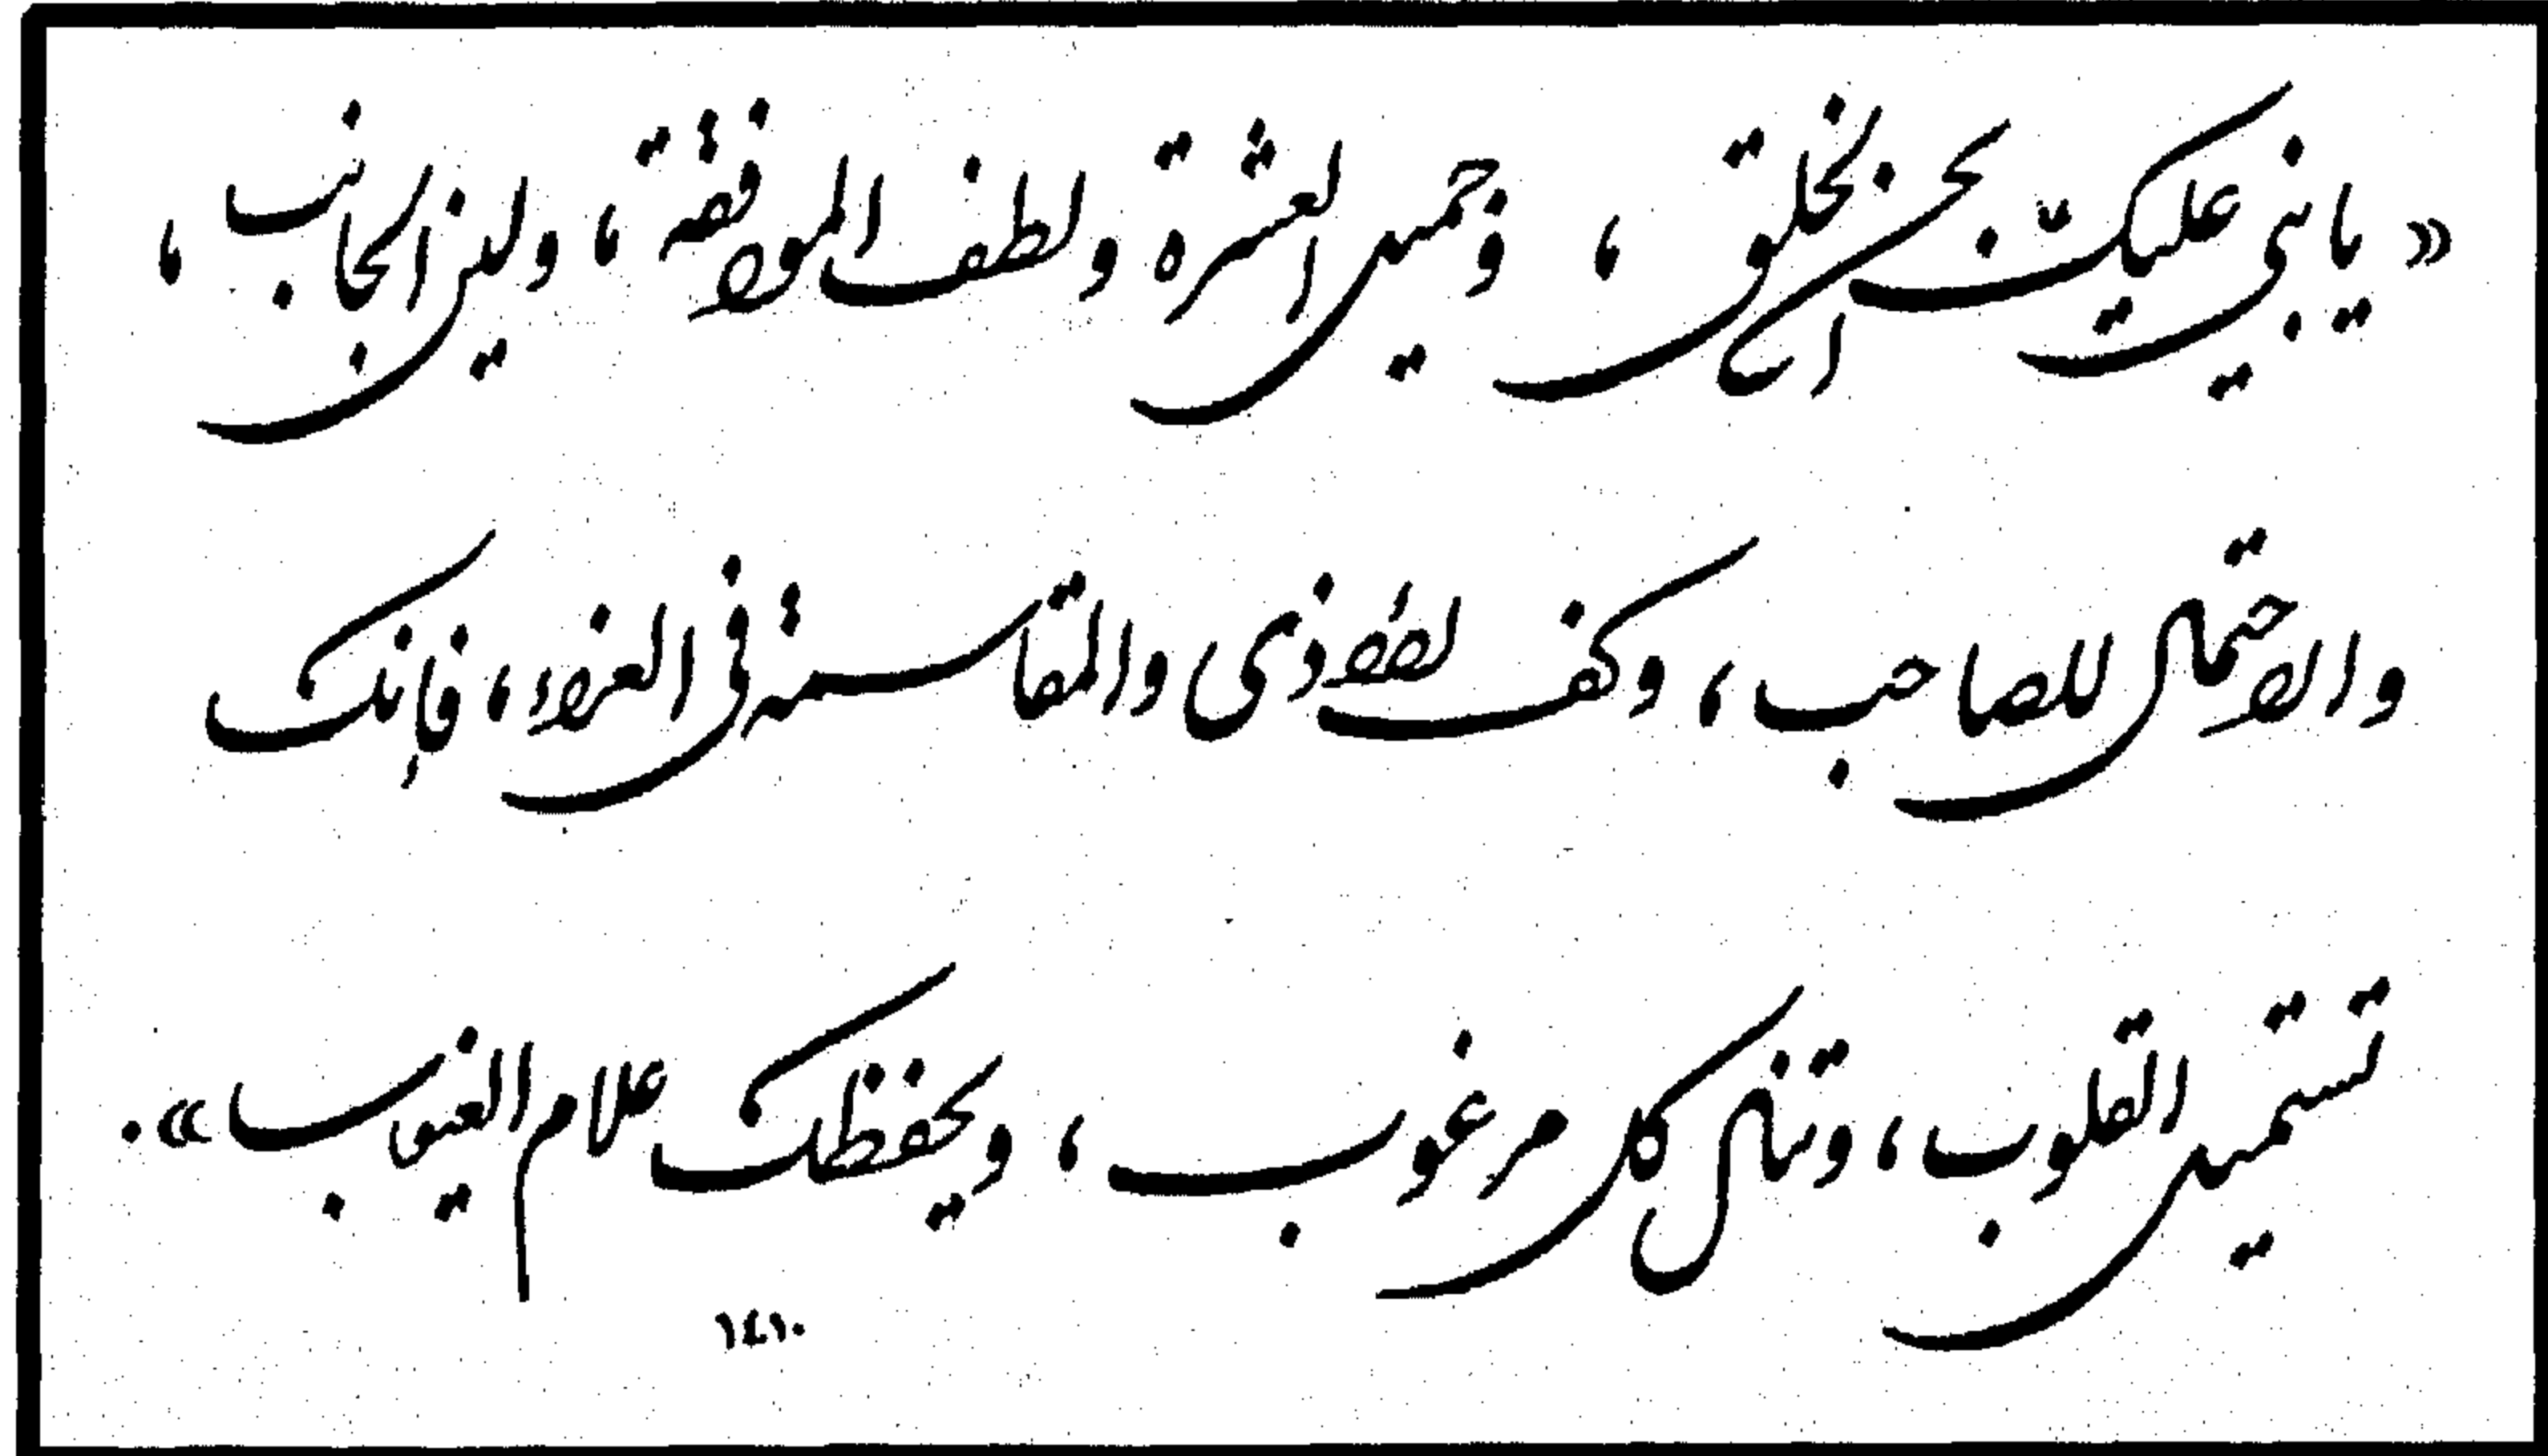 «يا بني عليك بحسن الخلق ، وجميل العشرة ولطف الموافقة ، ولين الجانب ،
والاحتمال للصاحب ، وكف الأذى والمقاسمة في العزاء ، فإنك
تستميل القلوب ، وتنال كل مرغوب ، ويحفظك علام الغيوب» .
١٤١٠